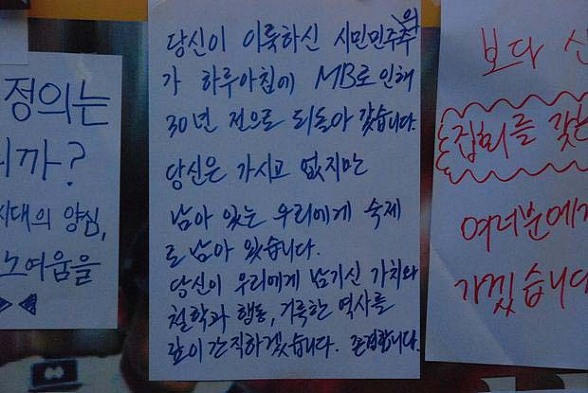 정의는
니까?
시대의 양심,
노여움을
당신이 이룩하신 시민민주주의
가 하루아침에 MB로 인해
30년 전으로 되돌아 갔습니다.
당신은 가시고 없지만
남아 있는 우리에게 숙제
로 남아 있습니다.
당신이 우리에게 남기신 가치와
철학과 행동, 거룩한 역사를
깊이 간직하겠습니다. 존경합니다.
보다
집회를 갖
여러분에게
가겠습니다